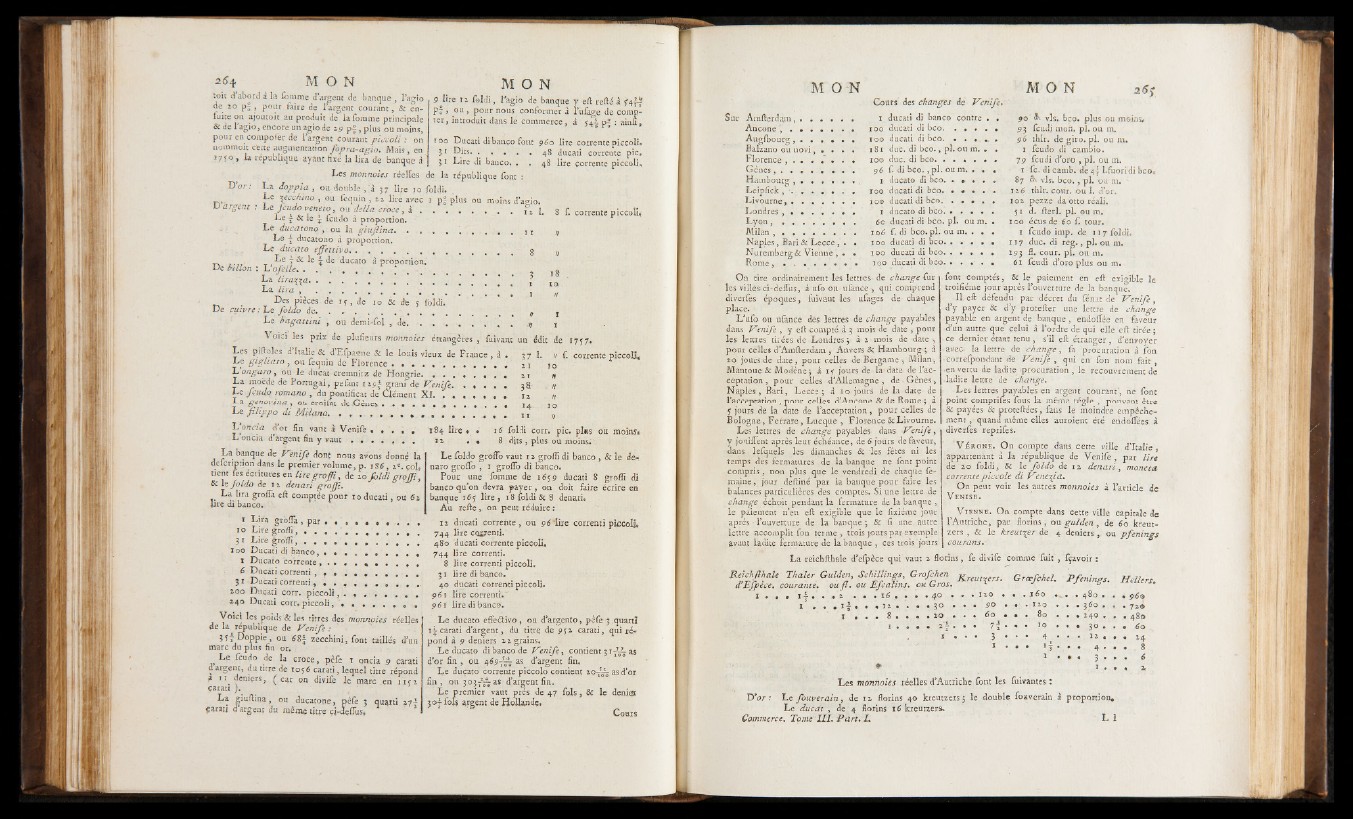 264 M O N
toit d'abord à la ſomme d'argent de banque, l'agio
de 20 p°/₀, pour faire de l'argent courant, & en-
ſuite on ajoutoit au produit de la ſomme principale
& de l'agio, encore un agio de 29 p°/₀, plus ou moins,
pour en compoſer de l'argent courant piccoli : on
nommoit cette augmentation ſopra-agio. Mais, en
1750, la république ayant fixé la lira de banque à
M O N
9 lire 12 ſoldi, l'agio de banque y eſt reſté à
p°/₀, ou, pour nous conformer à l'uſage de comp-
ter, introduit dans le commerce, à 54⅘ p°/₀ : ainſi,
100 Ducati di banco font 960 lire corrente piccoli.
31 Dits. . . . . . 48 ducati corrente pic.
31 Lire di banco. . . 48 lire corrente piccoli.
Les monnoies réelles de la république ſont :
D'or : La doppia, ou double, à 37 lire 10 ſoldi.
Le zecchino, ou ſequin, 22 lire avec 1 p°/₀ plus ou moins d'agio.
D'argent : Le ſcudo veneto, ou della croce, à . . . . . . 12 l. 8 ſ. corrente piccoli.
Le ½ & le ¼ ſcudo à proportion.
Le ducatono, ou la giuſtina. . . . . . . . . 11 〃
Le ½ ducatono à proportion.
Le ducato effettivo. . . . . . . . . . 8 〃
Le ½ & le ¼ de ducato à proportion.
De billon : L'oſelle. . . . . . . . . . 3 18
La lirazza. . . . . . . . . . 1 10
La lira, . . . . . . . . . . 1 〃
Des pièces de 15, de 10 & de 5 ſoldi.
De cuivre : Le ſoldo de. . . . . . . . . . 〃 1
Le bagattini, ou demi-ſol, de. . . . . . . . 〃 ½
Voici les prix de pluſieurs monnoies étrangères, ſuivant un édit de 1757.
Les piſtoles d'Italie & d'Eſpagne & le louis vieux de France, à . 37 l. 〃 ſ. corrente piccoli.
Le gigliaro, ou ſequin de Florence . . . . . . . 21 10
L'ongaro, ou le ducat cremnitz de Hongrie. . . . . . 21 〃
La moède de Portugal, peſant grani de Veniſe. . . . . . 38 〃
Le ſcudo romano, du pontificat de Clément XI. . . . . . . 12 〃
La genovina, ou croiſat de Gênes . . . . . . . 14 10
Le filippo di Milano. . . . . . . . . . 11 〃
L'oncia d'or fin vaut à Veniſe . . . . . 184 lire . . 16 ſoldi corr. pic. plus ou moins.
L'oncia d'argent fin y vaut . . . . . . 12 . . 8 dits, plus ou moins.
La banque de Veniſe dont nous avons donné la
deſcription dans le premier volume, p. 186, 2ᵉ. col.
tient ſes écritures en lire groſſi, de 20 ſoldi groſſi,
& le ſoldo de 12 denari groſſi.
La lira groſſa eſt comptée pour 10 ducati, ou 62
lire di banco.
1 Lira groſſa, par . . . . . . . .
10 Lire groſſi, . . . . . . . .
31 Lire groſſi, . . . . . . . .
100 Ducati di banco, . . . . . . . .
1 Ducato corrente, . . . . . . . .
6 Ducati correnti, . . . . . . . .
31 Ducati correnti, . . . . . . . .
200 Ducati corr. piccoli, . . . . . . . .
240 Ducati corr. piccoli, . . . . . . . .
Voici les poids & les titres des monnoies réelles
de la république de Veniſe :
Doppie, ou zecchini, ſont taillés d'un
marc du plus fin or.
Le ſcudo de la croce, pèſe 1 oncia 9 carati
d'argent, du titre de 1056 carati, lequel titre répond
à 11 deniers, (car on diviſe le marc en 1152
carati).
La giuſtina, ou ducatone, pèſe 3 quarti
carati d'argent du même titre ci-deſſus.
Le ſoldo groſſo vaut 12 groſſi di banco, & le de-
naro groſſo, 1 groſſo di banco.
Pour une ſomme de 1659 ducati 8 groſſi di
banco qu'on devra payer, on doit faire écrire en
banque 165 lire, 18 ſoldi & 8 denari.
Au reſte, on peut réduire :
12 ducati corrente, ou 96 lire correnti piccoli.
744 lire correnti.
480 ducati corrente piccoli.
744 lire correnti.
8 lire correnti piccoli.
31 lire di banco.
40 ducati correnti piccoli.
961 lire correnti.
961 lire di banco.
Le ducato effectivo, ou d'argento, pèſe 3 quarti
carati d'argent, du titre de 952 carati, qui ré-
pond à 9 deniers 22 grains.
Le ducato di banco de Veniſe, contient as
d'or fin, ou as d'argent fin.
Le ducato corrente piccolo contient as d'or
fin, ou as d'argent fin.
Le premier vaut près de 47 ſols, & le denier
ſols argent de Hollande.
Cours
M O N
M O N 265
Cours des changes de Veniſe.
Sur Amſterdam, . . . . . . 1 ducati di banco contre . . 90 & vls. bco. plus ou moins.
Ancone, . . . . . . . 100 ducati di bco. . . . . . 93 ſcudi mon. pl. ou m.
Augſbourg, . . . . . . 100 ducati di bco. . . . . . 96 thlr. de giro. pl. ou m.
Balzano ou novi, . . . . 181 duc. di bco., pl. ou m. . . 1 ſcudo di cambio.
Florence, . . . . . . . 100 duc. di bco. . . . . . . 79 ſcudi d'oro, pl. ou m.
Gênes, . . . . . . . . 96 ſ. di bco., pl. ou m. . . . 1 ſc. di camb. de 4⅗ l. fuori di bco.
Hambourg, . . . . . . 1 ducato di bco. . . . . . 87 & vls. bco., pl. ou m.
Leipſick, . . . . . . . 100 ducati di bco. . . . . . 126 thlr. cour. ou l. d'or.
Livourne, . . . . . . . 100 ducati di bco. . . . . . 102 pezze da otto réali.
Londres, . . . . . . . 1 ducato di bco. . . . . . 51 d. ſterl. pl. ou m.
Lyon, . . . . . . . . 60 ducati di bco. pl. ou m. . 100 écus de 60 ſ. tour.
Milan, . . . . . . . . 106 ſ. di bco. pl. ou m. . . . 1 ſcudo imp. de 117 ſoldi.
Naples, Bari & Lecce, . . 100 ducati di bco. . . . . . 117 duc. di reg., pl. ou m.
Nuremberg & Vienne, . . 100 ducati di bco. . . . . . 193 fl. cour. pl. ou m.
Rome, . . . . . . . . 100 ducati di bco. . . . . . 61 ſcudi d'oro plus ou m.
On tire ordinairement les lettres de change ſur
les villes ci-deſſus, à uſo ou uſance, qui comprend
diverſes époques, ſuivant les uſages de chaque
place.
L'uſo ou uſance des lettres de change payables
dans Veniſe, y eſt compté à 3 mois de date, pour
les lettres tirées de Londres ; à 2 mois de date,
pour celles d'Amſterdam, Anvers & Hambourg ; à
20 jours de date, pour celles de Bergame, Milan,
Mantoue & Modène ; à 15 jours de la date de l'ac-
ceptation, pour celles d'Allemagne, de Gênes,
Naples, Bari, Lecce ; à 10 jours de la date de
l'acceptation, pour celles d'Ancone & de Rome ; à
5 jours de la date de l'acceptation, pour celles de
Bologne, Ferrare, Lucque, Florence & Livourne.
Les lettres de change payables dans Veniſe,
y jouiſſent après leur échéance, de 6 jours de faveur,
dans leſquels les dimanches, & les fêtes ni les
temps des fermatures de la banque ne ſont point
compris, non plus que le vendredi de chaque ſe-
maine, jour deſtiné par la banque pour faire les
balances particulières des comptes. Si une lettre de
change échoit pendant la fermature de la banque,
le paiement n'en eſt exigible que le ſixième jour
après l'ouverture de la banque ; & ſi une autre
lettre accomplit ſon terme, trois jours par exemple
avant ladite fermature de la banque, ces trois jours
ſont comptés, & le paiement en eſt exigible le
troiſième jour après l'ouverture de la banque.
Il eſt défendu par décret du ſénat de Veniſe,
d'y payer & d'y proteſter une lettre de change
payable en argent de banque, endoſſée en faveur
d'un autre que celui à l'ordre de qui elle eſt tirée ;
ce dernier étant tenu, s'il eſt étranger, d'envoyer
avec la lettre de change, ſa procuration à ſon
correſpondant de Veniſe, qui en ſon nom fait,
en vertu de ladite procuration, le recouvrement de
ladite lettre de change.
Les lettres payables en argent courant, ne ſont
point compriſes ſous la même règle, pouvant être
& payées & proteſtées, ſans le moindre empêche-
ment, quand même elles auroient été endoſſées à
diverſes repriſes.
VÉRONE. On compte dans cette ville d'Italie,
appartenant à la république de Veniſe, par lire
de 20 ſoldi, & le ſoldo de 12 denari, moneta
corrente piccole di Venezia.
On peut voir les autres monnoies à l'article de
VENISE.
VIENNE. On compte dans cette ville capitale de
l'Autriche, par florins, ou gulden, de 60 kreut-
zers, & le kreutzer de 4 deniers, ou pfenings
courans.
La reichſthale d'eſpèce qui vaut 2 florins, ſe diviſe comme ſuit, ſçavoir :
Reichſthale Thaler Gulden, Schillings, Groſchen Kreutzers. Grœſchel. Pfenings. Hellers.
d'Eſpèce. courante. ou fl. ou Eſcalins. ou Gros.
1 . . . 1⅓ . . . 2 . . . 16 . . . . 40 . . . 120 . . . 160 . . . 480 . . . 960
1 . . . 1½ . . . 12 . . . . 30 . . . 90 . . . 120 . . . 360 . . . 720
1 . . . 8 . . . . 20 . . . 60 . . . 80 . . . 240 . . . 480
1 . . . . 2½ . . . 7½ . . . 10 . . . 30 . . . 60
1 . . . 3 . . . 4 . . . 12 . . . 24
1 . . . 1⅓ . . . 4 . . . 8
1 . . . 3 . . . 6
1 . . . 2
Les monnoies réelles d'Autriche ſont les ſuivantes :
D'or : Le ſouverain, de 12 florins 40 kreutzers ; le double ſouverain à proportion.
Le ducat, de 4 florins 16 kreutzers.
Commerce. Tome III. Part. I. L l